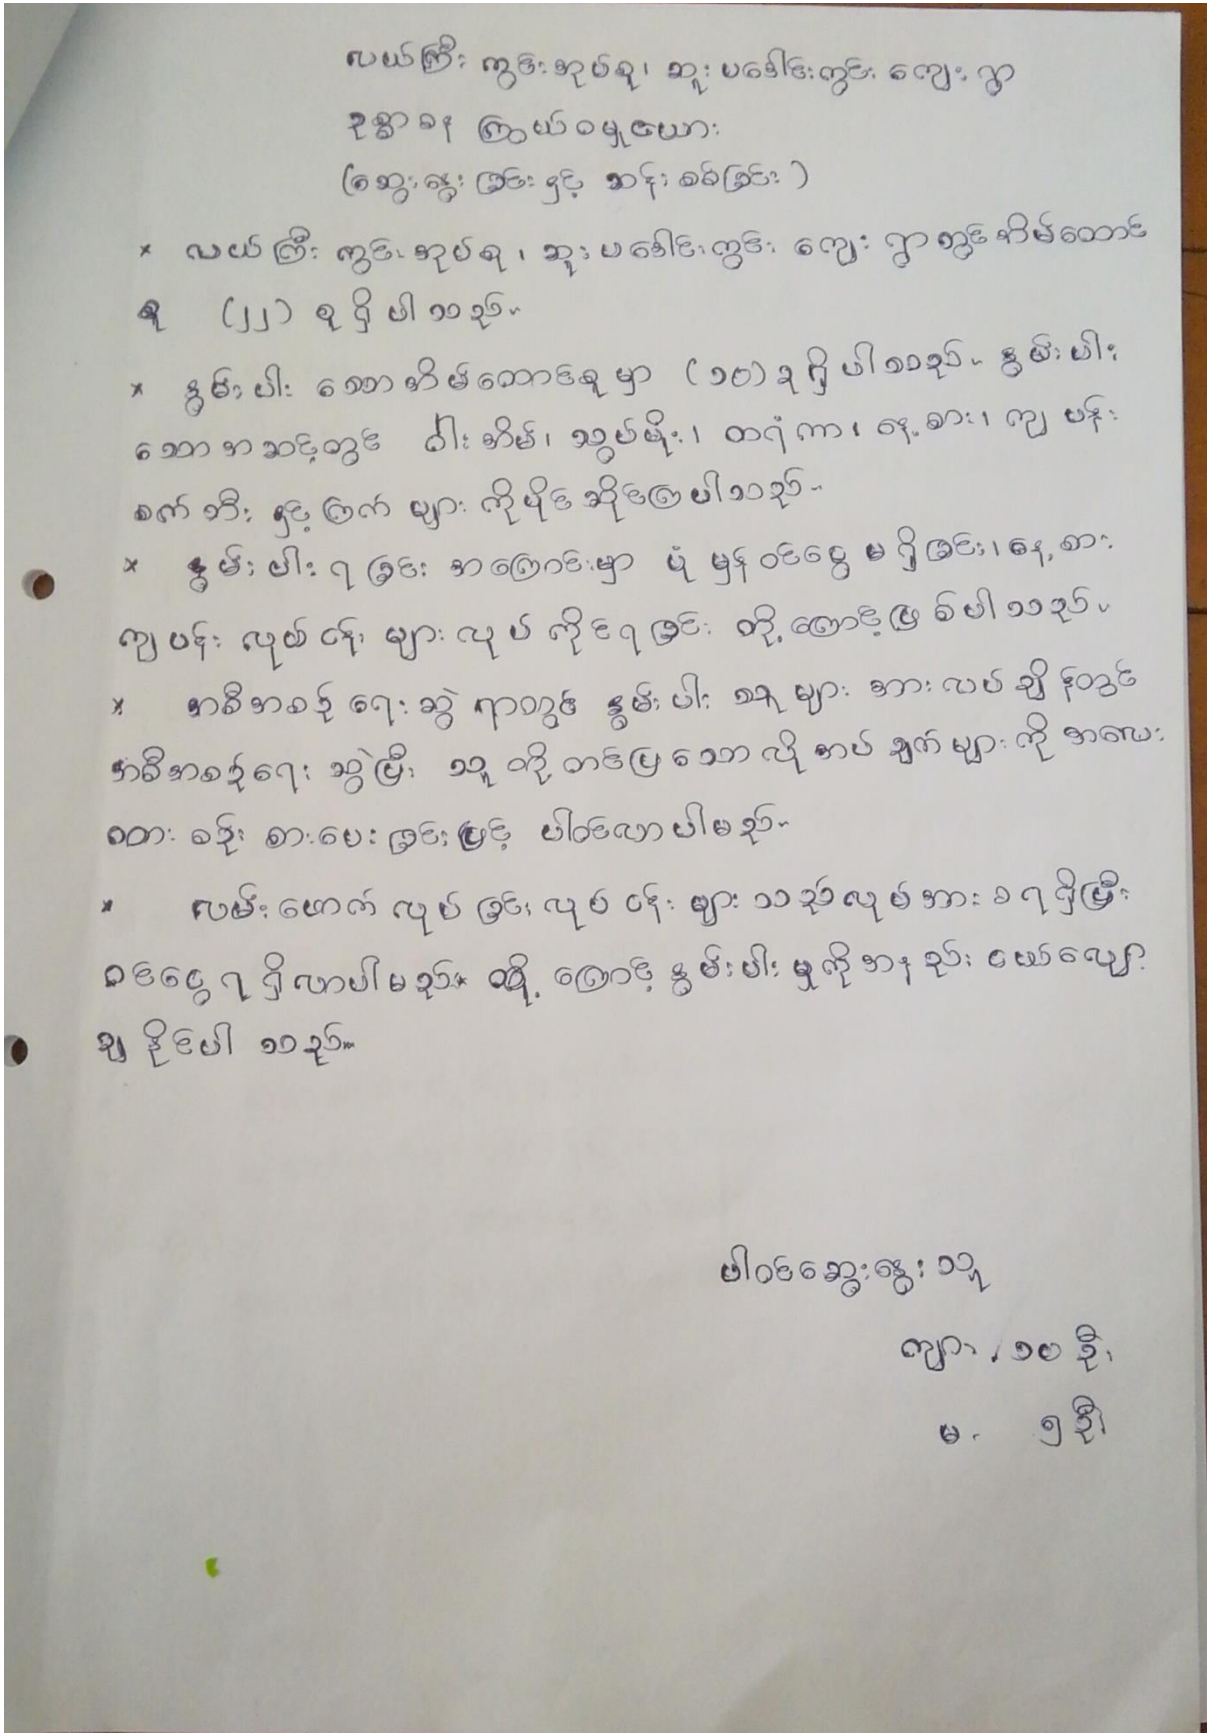 လယ်ကြီးကွင်းအုပ်စု၊ ဆူးပခေါင်းကွင်းကျေးရွာ
ဥစ္စာဓန ကြွယ်ဝမှုဇယား
(ဆွေးနွေးခြင်းနှင့် ဆန်းစစ်ခြင်း)
* လယ်ကြီးကွင်းအုပ်စု၊ ဆူးပခေါင်းကွင်းကျေးရွာတွင်အိမ်ထောင်
စု (၂၂) စုရှိပါသည်။
* နွမ်းပါးသောအိမ်ထောင်စုမှာ (၁၀) ခုရှိပါသည်။ နွမ်းပါး
သောအဆင့်တွင် ဝါးအိမ်၊ သွပ်မိုး၊ ထရံကာ၊ နေ့စား၊ ကျပန်း
စက်ဘီးနှင့်ကြက်များကိုပိုင်ဆိုင်ကြပါသည်။
* နွမ်းပါးရခြင်းအကြောင်းမှာ ပုံမှန်ဝင်ငွေမရှိခြင်း၊နေ့စား
ကျပန်းလုပ်ငန်းများလုပ်ကိုင်ရခြင်းတို့ကြောင့်ဖြစ်ပါသည်။
* အစီအစဉ်ရေးဆွဲရာတွင် နွမ်းပါးသူများအားလပ်ချိန်တွင်
အစီအစဉ်ရေးဆွဲပြီး သူတို့တင်ပြသောလိုအပ်ချက်များကိုအလေး
ထားစဉ်းစားပေးခြင်းဖြင့် ပါဝင်လာပါမည်။
* လမ်းဖောက်လုပ်ခြင်းလုပ်ငန်းများသည်လုပ်အားခရရှိပြီး
ဝင်ငွေရရှိလာပါမည်။ ထို့ကြောင့်နွမ်းပါးမှုကိုအနည်းငယ်လျော့
ချနိုင်ပါသည်။
ပါဝင်ဆွေးနွေးသူ
ကျား . ၁၀ ဦး
မ . ၅ ဦး